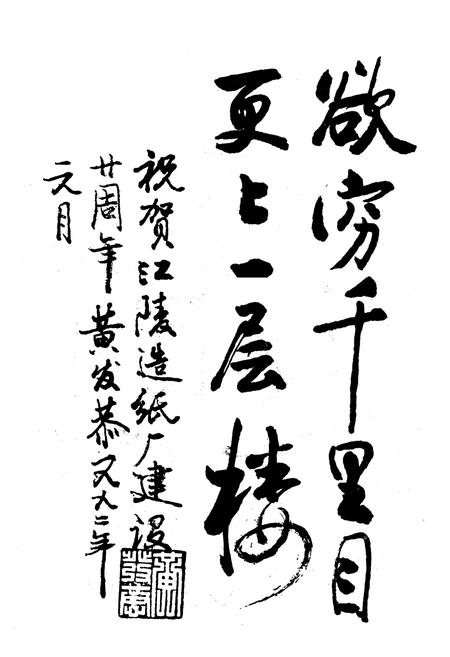 欲穷千里目
更上一层楼
祝贺江陵造纸厂建设
廿周年 黄发恭 九二年
元月